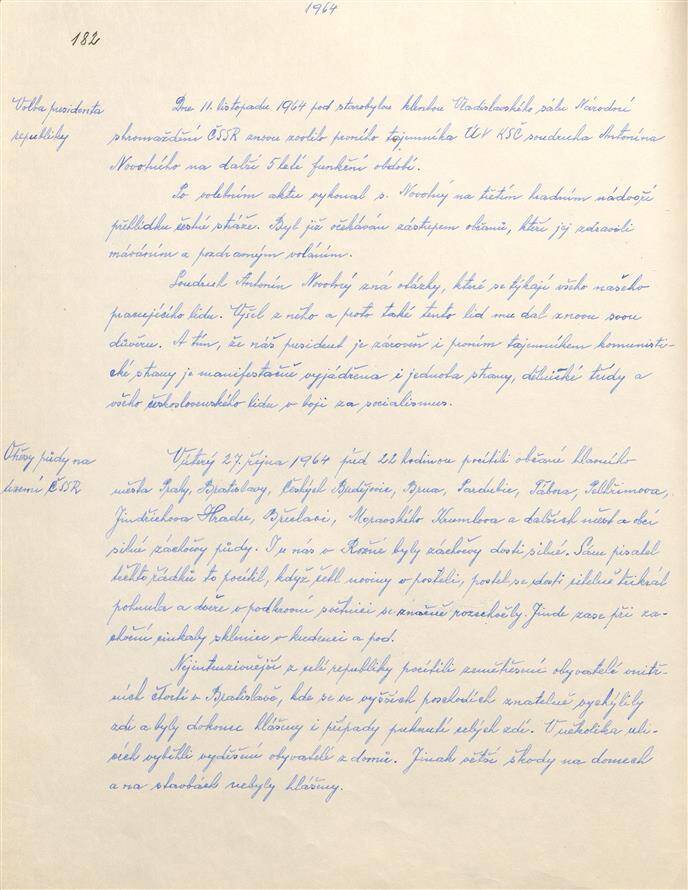 1964
182
Volba presidenta
republiky
Dne 11. listopadu 1964 pod starobylou klenbou Vladislavského sálu Národní
shromáždění ČSSR znovu zvolilo prvního tajemníka ÚV KSČ soudruha Antonína
Novotného na další 5 leté funkční období.
Po volebním aktu vykonal s. Novotný na třetím hradním nádvoří
přehlídku čestné stráže. Byl již očekáván zástupem občanů, kteří jej zdravili
máváním a pozdravným voláním.
Soudruh Antonín Novotný zná otázky, které se týkají všeho našeho
pracujícího lidu. Vyšel z něho a proto také tento lid mu dal znovu svou
důvěru. A tím, že náš president je zároveň i prvním tajemníkem komunisti-
cké strany je manifestačně vyjádřena i jednota strany, dělnické třídy a
všeho československého lidu v boji za socialismus.
Otřesy půdy na
území ČSSR
V úterý 27. října 1964 před 22 hodinou pocítili občané hlavního
města Prahy, Bratislavy, Českých Budějovic, Brna, Pardubic, Tábora, Pelhřimova,
Jindřichova Hradce, Břeclavi, Moravského Krumlova a dalších měst a obcí
silné záchvěvy půdy. I u nás v Rožné byly záchvěvy dosti silné. Sám pisatel
těchto řádků to pocítil, když četl noviny v posteli, postel se dosti citelně třikrát
pohnula a dveře v podkrovní světnici se značně rozechvěly. Jinde zase při za-
chvění cinkaly sklenice v kredenci a pod.
Nejintenzivněji z celé republiky pocítili zemětřesení obyvatelé vnitř-
ních čtvrtí v Bratislavě, kde se ve vyšších poschodích znatelně vychýlily
zdi a byly dokonce hlášeny i případy puknutí celých zdí. V několika uli-
cích vyběhli vyděšení obyvatelé z domů. Jinak větší škody na domech
a na stavbách nebyly hlášeny.